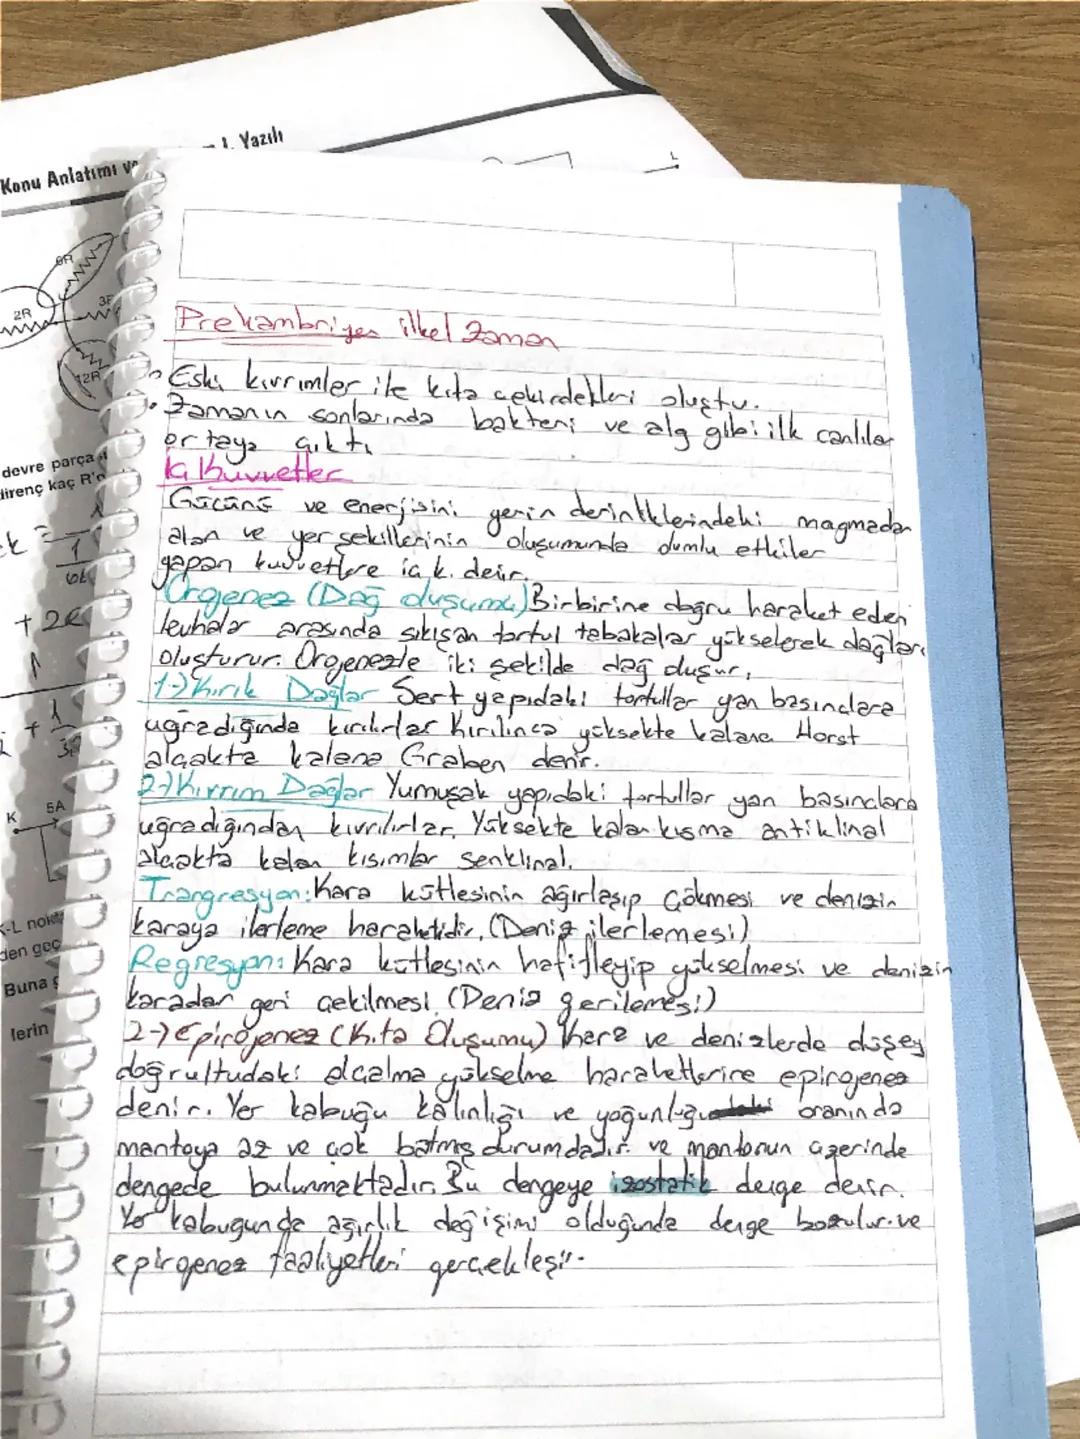 Konu Anlatımı ve
1. Yazılı
6R
2R
3R
12R
devre parça
direnç kaç R'
+ 2R
5A
K
K-L nokt
den geç
Buna g
lerin
L
Prekambriyen ilkel Zaman
• Eski kıvrımler ile kıta çekirdekleri oluştu.
• Zamanın sonlarında bakteri ve alg gibi ilk canlılar
ortaya çıktı
İç Kuvvetler
Gücünü ve enerjisini yerin derinliklerindeki magmadan
alan ve yer şekillerinin oluşumunda olumlu etkiler
yapan kuvvetlere iç k. denir.
Orojenez (Dağ oluşumu) Birbirine doğru haraket eden
levhalar arasında sıkışan tortul tabakalar yükselerek dağları
oluşturur. Orojenezle iki şekilde dağ oluşur,
1-) Kırık Dağlar Sert yapıdaki tortullar yan basınclara
uğradığında kırılırlar Kırılınca yüksekte kalana Horst
alçakta kalana Graben denir.
2-) Kıvrım Dağlar Yumuşak yapıdaki tortullar yan basınclara
uğradığından kıvrılırlar. Yüksekte kalan kısma antiklinal
alçakta kalan kısımlar senklinal.
Trangresyon: Kara kütlesinin ağırlaşıp çökmesi ve denizin
karaya ilerleme haraketidir. (Deniz ilerlemesi)
Regresyon: Kara kütlesinin hafifleyip yükselmesi ve denizin
karadan geri çekilmesi (Deniz gerilemesi)
2-) Epirojenez (Kıta Oluşumu) Kara ve denizlerde düşey
doğrultudaki alçalma yükselme haraketlerine epirojenez
denir. Yer kabuğu kalınlığı ve yoğunluğu oranında
mantoya az ve çok batmış durumdadır. ve mantonun üzerinde
dengede bulunmaktadır. Bu dengeye izostatik denge denir.
Yer kabugunda ağırlık değişimi olduğunda denge bozulur. ve
epirojenez faaliyetleri gerçekleşir.